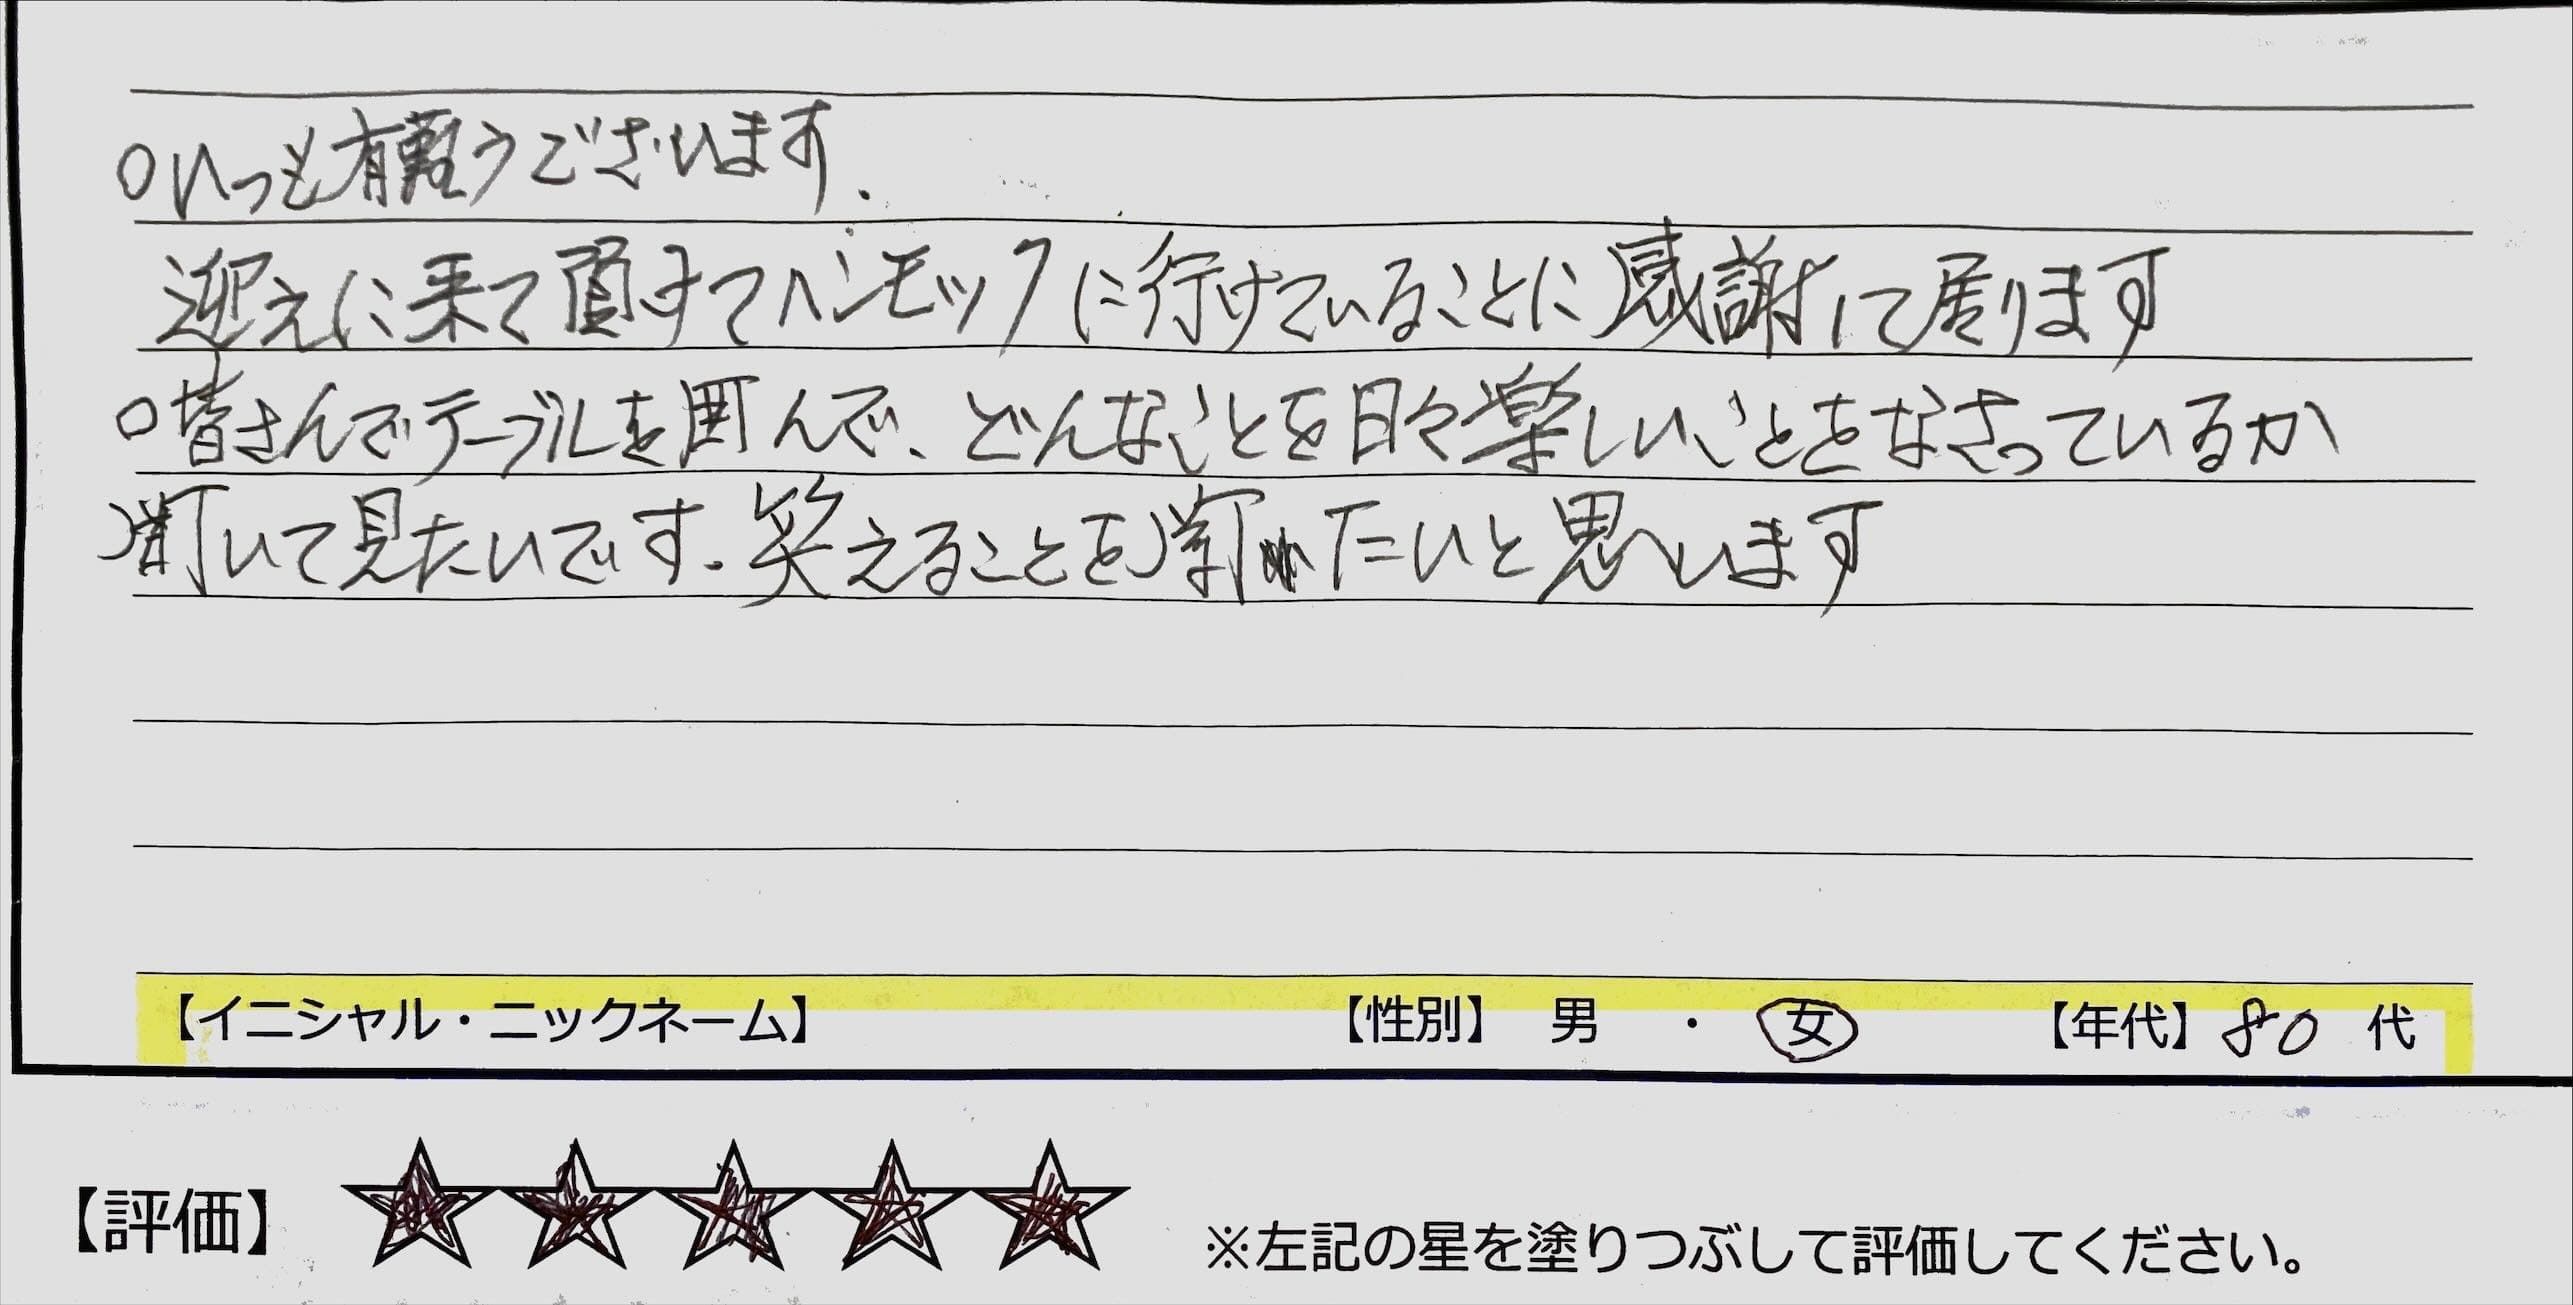 ○いつも有難うございます.
迎えに来て頂けてハンモックに行けていることに感謝して居ります
○皆さんでテーブルを囲んで、どんなことを日々楽しいことをなさっているか
聞いて見たいです. 笑えることを たいと思います
【イニシャル・ニックネーム】 【性別】 男 ・ 女 【年代】 80 代
【評価】 ★★★★★ ※左記の星を塗りつぶして評価してください。